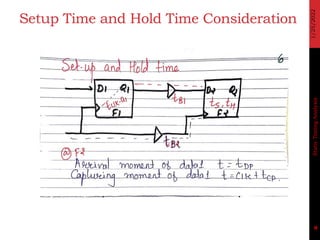 Setup Time and Hold Time Consideration
1/25/2022
6
Set-up and Hold time
D1 Q1
D2 Q2
tclk-q1
tB1
ts, tH
F1
F2
tB2
@ F2
Arrival moment of data1 t = tDP
Capturing moment of data1 t = CLK + tCP.
Static Timing Analysis